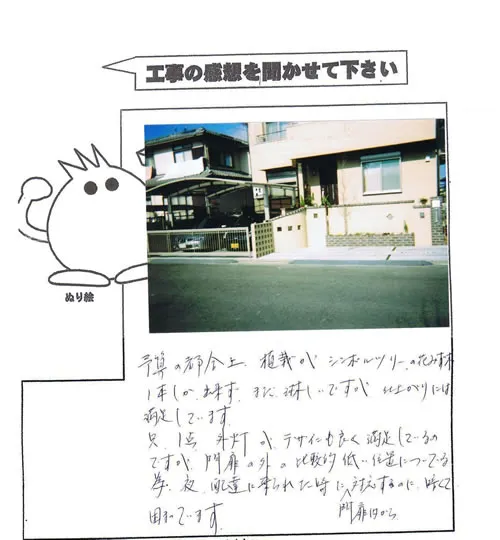 工事の感想を聞かせて下さい
ぬり絵
予算の都合上、植栽が シンボルツリーの花みず木
1本しか 出来ず、まだ 淋しいですが 仕上がりには
満足しています。
只、1点 外灯が、デザインも良く 満足しているの
ですが、門扉の外の 比較的 低い位置についている
為、夜、配達に来られた時に 対応するのに、暗くて
門扉は
困っています。